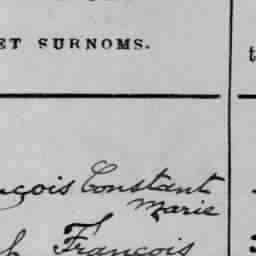 ET SURNOMS.
t
nçois Constant
Marie
h François